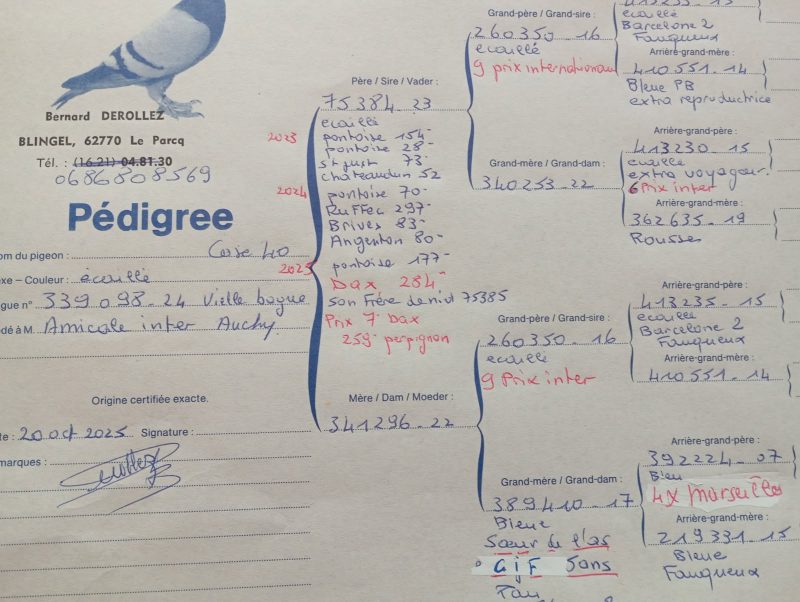 Bernard DEROLLEZ
BLINGEL, 62770 Le Parcq
Tél. : (16.21) 04.81.30
0686808569
Pédigree
om du pigeon : Case 40
xe – Couleur : écaillé
gue n° 339098-24 Vielle bague
dé à M. Amicale inter Auchy
Origine certifiée exacte.
te : 20 oct 2025 Signature :
marques :
Père / Sire / Vader :
75384-23
ecaillé
2023 pontoise 154-
pontoise 28-
st just 73-
chateaudun 52
2024 pontoise 70-
Ruffec 297-
Brives 83-
Argenton 80-
2025 pontoise 177-
Dax 284-
son Frère de nid 75385
Prix 7- Dax
259- perpignon
Mère / Dam / Moeder :
341296-22
Grand-père / Grand-sire :
260350-16
ecaillé
9 prix internationaux
Grand-mère / Grand-dam :
340253-22
Grand-père / Grand-sire :
260350-16
ecaillé
9 Prix inter
Grand-mère / Grand-dam :
389410-17
Bleue
Sœur de l'as
GIF Sons
ecaillé
Barcelone 2
Fauqueux
Arrière-grand-mère :
410551-14
Bleue PB
extra reproductrice
Arrière-grand-père :
413230-15
ecaille
extra voyageur
6 Prix inter
Arrière-grand-mère :
362635-19
Rousse
Arrière-grand-père :
413235-15
ecaille
Barcelone 2
Fauqueux
Arrière-grand-mère :
410551-14
Arrière-grand-père :
392224-07
Bleu
4x Marseille
Arrière-grand-mère :
219331-15
Bleue
Fauqueux